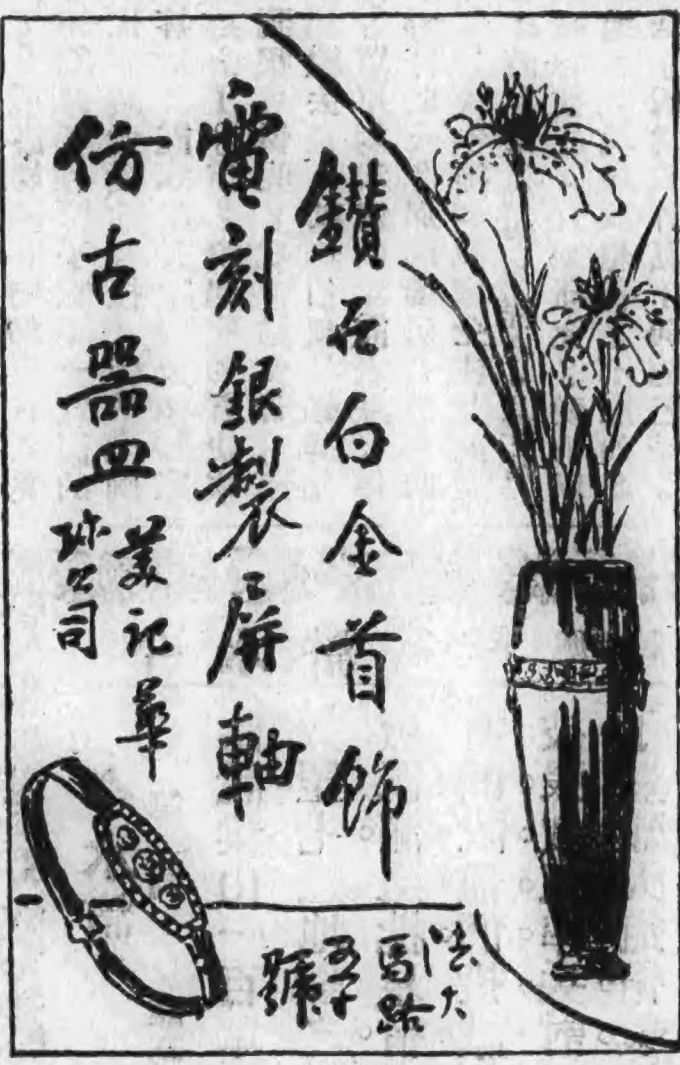 鑽石白金首飾
電刻銀製屏軸
仿古器皿
美記華
珠公司
法大
馬路
號